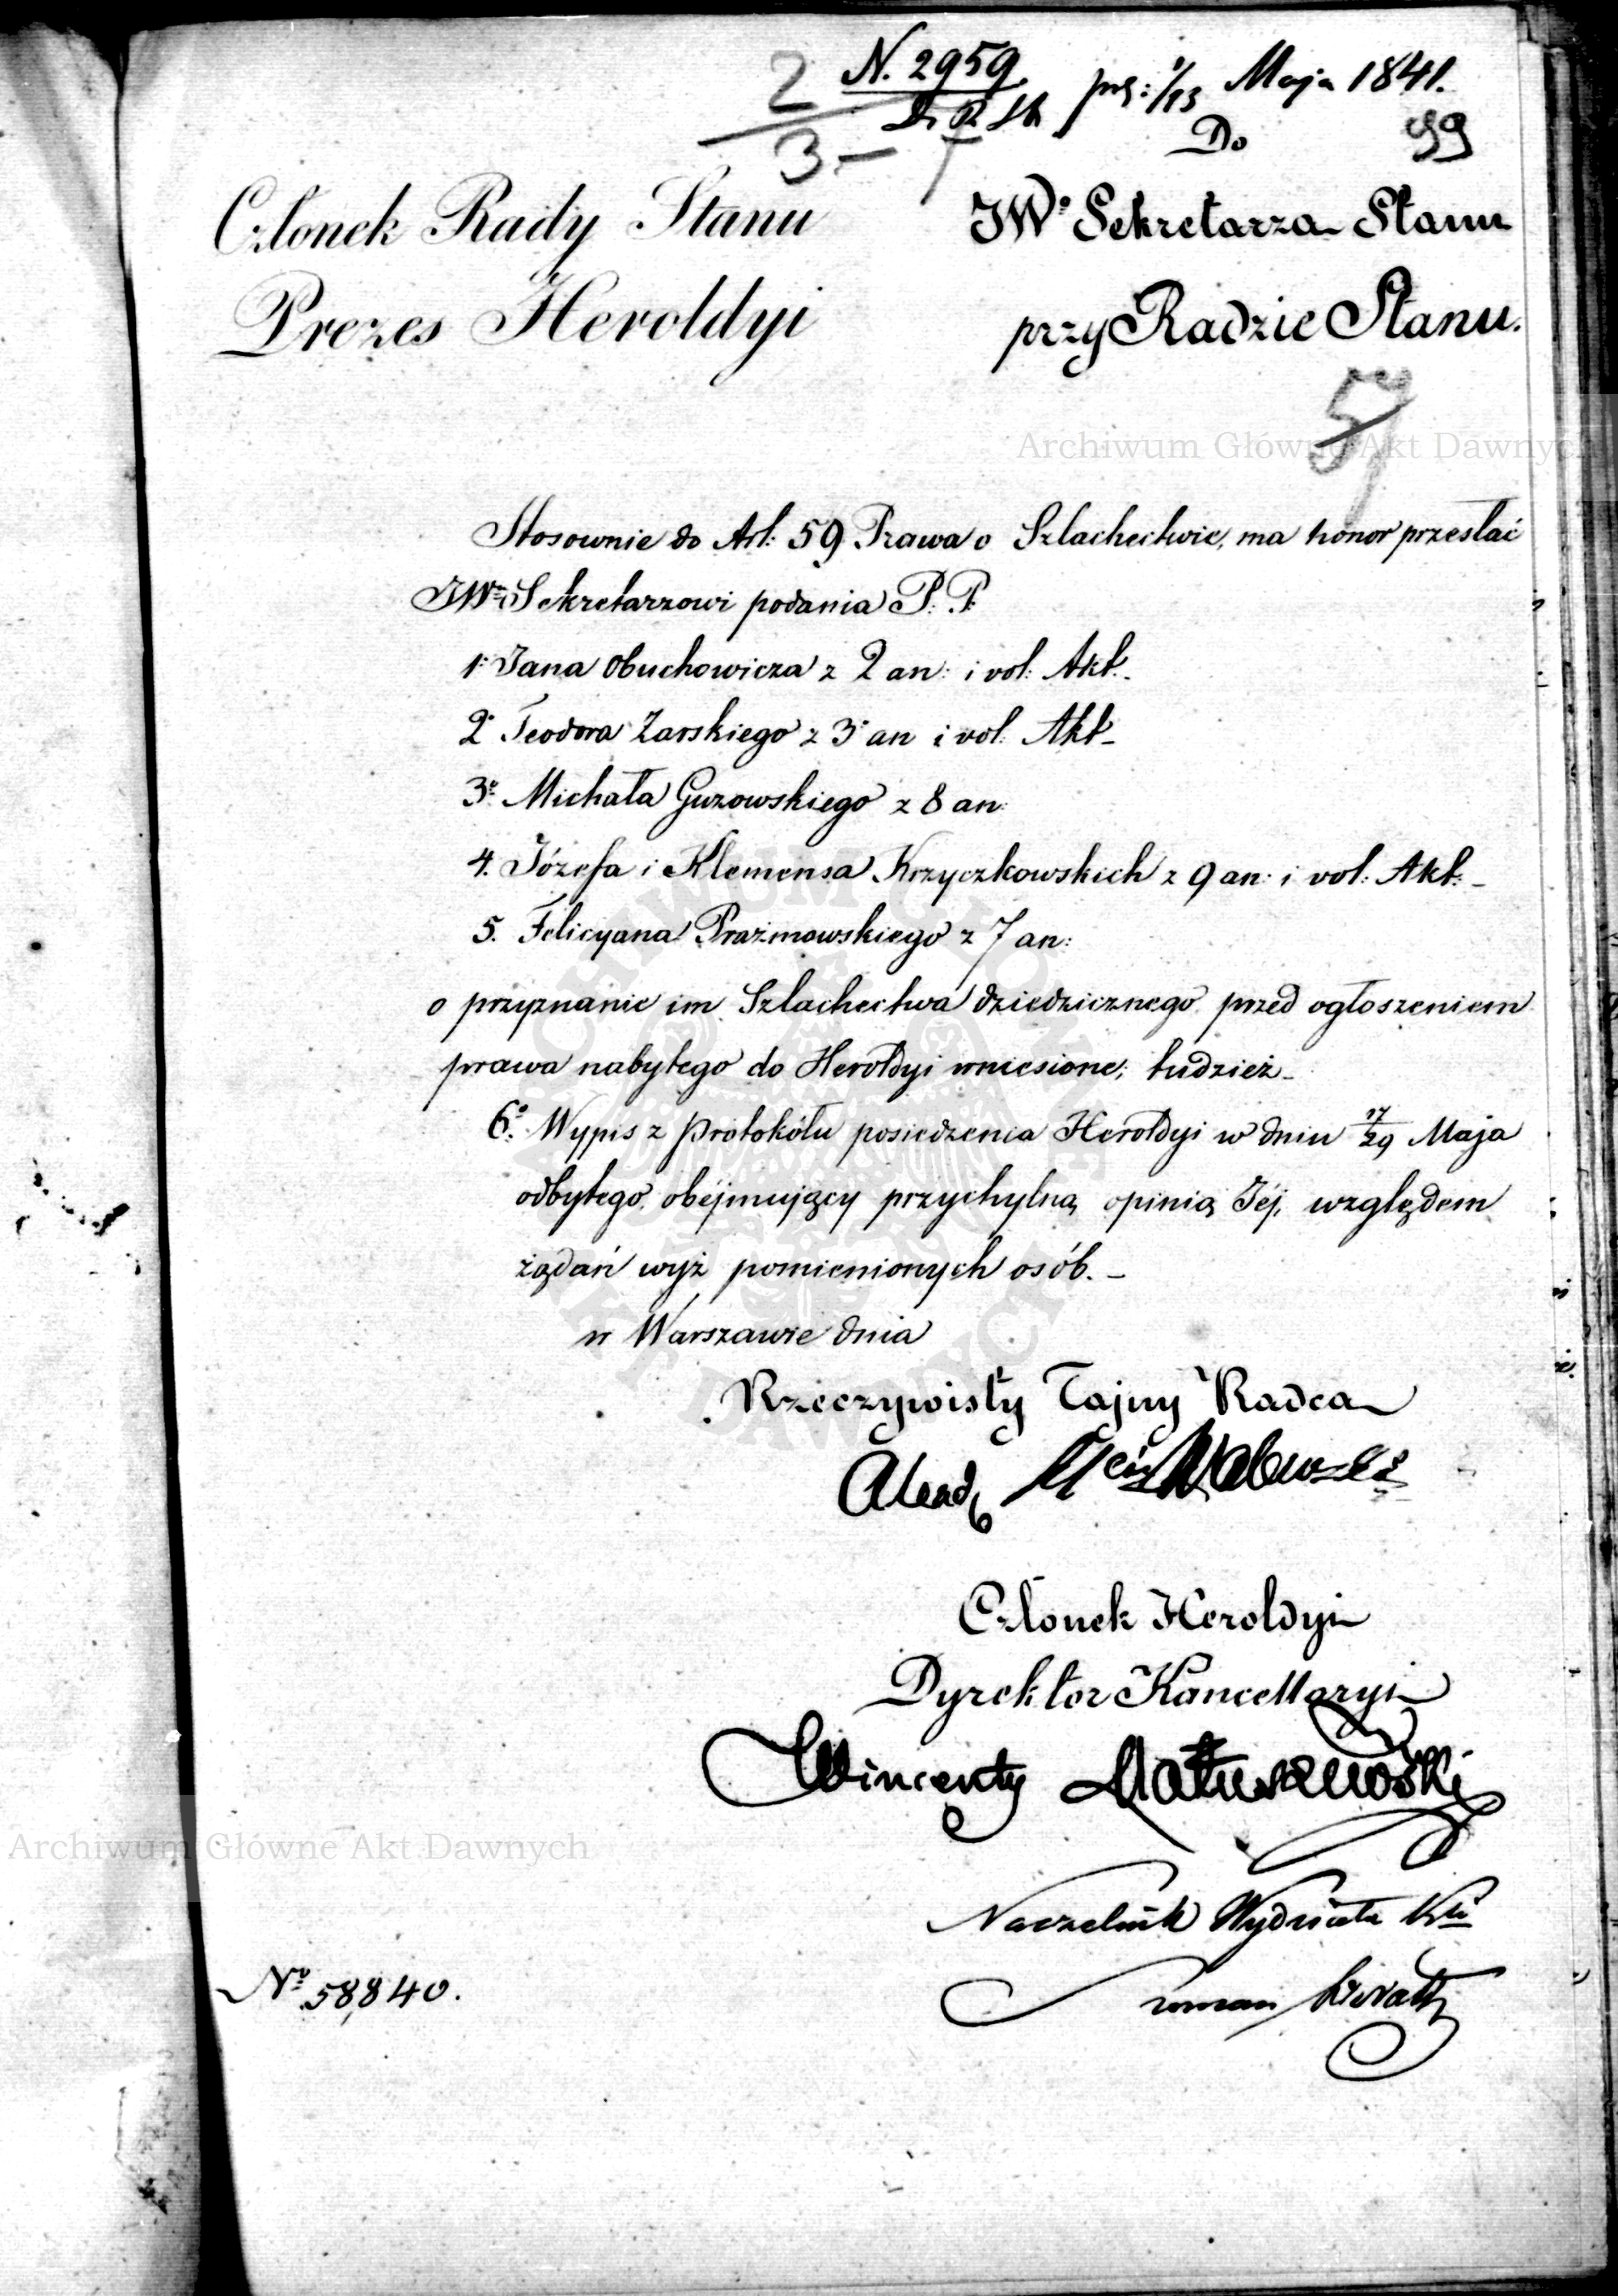 N. 2959
Maja 1841.
2
3
Do
99
Członek Rady Stanu
Prezes Heroldyi
JWo Sekretarza Stanu
przy Radzie Stanu.
Archiwum Główne Akt Dawnych
Stosownie do Art: 59 Prawa o Szlachectwie, ma honor przesłać
JWmu Sekretarzowi podania P. P.
1o Jana Obuchowicza z 2 an: i vol: Akt. _
2o Teodora Żarskiego z 3 an i vol: Akt _
3o Michała Guzowskiego z 8 an:
4. Józefa i Klemensa Krzyczkowskich z 9 an: i vol: Akt: _
5. Felicyana Prażmowskiego z 7 an:
o przyznanie im Szlachectwa dziedzicznego przed ogłoszeniem
prawa nabytego do Heroldyi wniesione; tudzież _
6o Wypis z Protokółu posiedzenia Heroldyi w dniu 17/29 Maja
odbytego, obéjmujący przychylną opinią Jéj, względem
żądań wyż pomienionych osób. _
w Warszawie dnia
Rzeczywisty Tajny Radca
Członek Heroldyi
Dyrektor Kancellaryi
Wincenty Matuszewski
Archiwum Główne Akt Dawnych
Naczelnik Wydziału
No 58,840.
ARCHIWUM GŁÓWNE AKT DAWNYCH